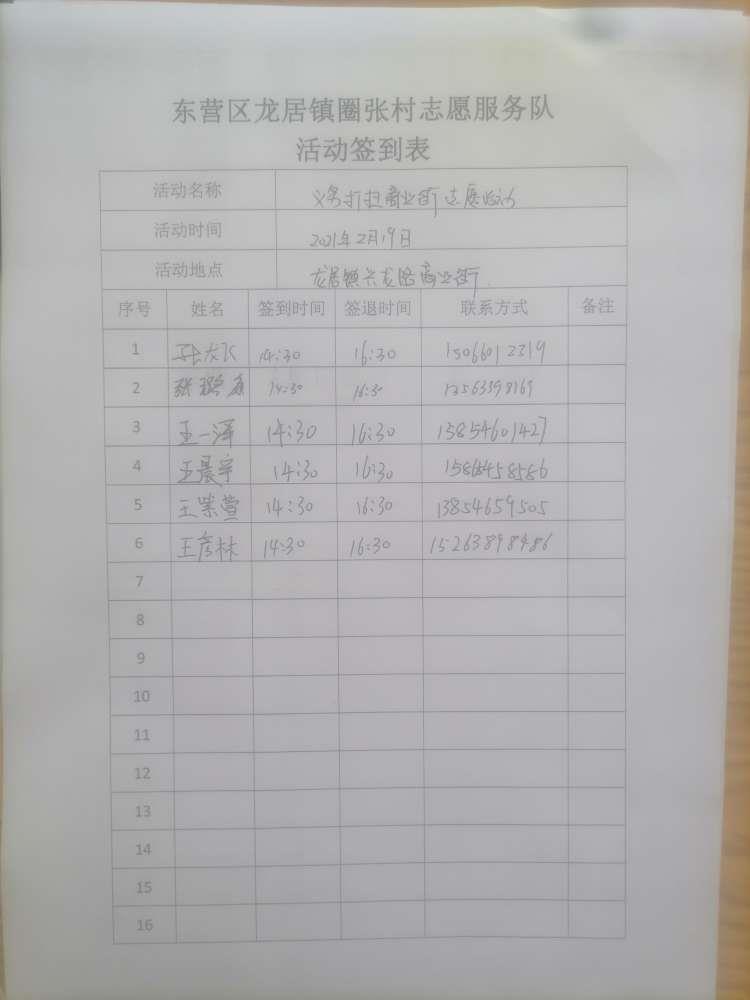 东营区龙居镇圈张村志愿服务队
活动签到表
活动名称 义务打扫商业街志愿活动
活动时间 2021年2月19日
活动地点 龙居镇兴龙路商业街
序号 姓名 签到时间 签退时间 联系方式 备注
1 张龙飞 14:30 16:30 15066012319
2 张 14:30 16:30 13563398169
3 王一泽 14:30 16:30 15854601427
4 王晨宇 14:30 16:30
5 王紫萱 14:30 16:30 13854659505
6 王彦林 14:30 16:30 15263898486
7
8
9
10
11
12
13
14
15
16